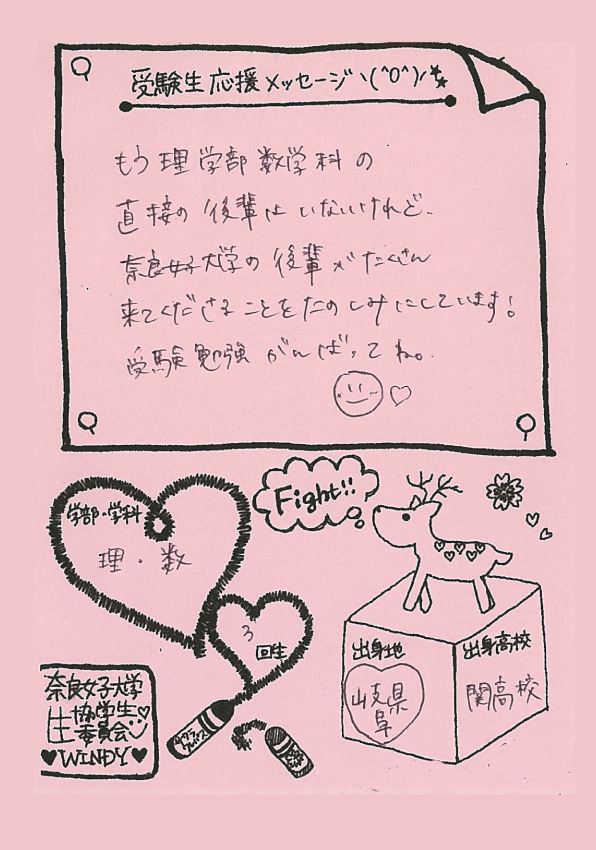 受験生応援メッセージ＼(^O^)／
もう理学部数学科の
直接の後輩はいないけれど、
奈良女子大学の後輩がたくさん
来てくださることをたのしみにしています!
受験勉強がんばってね。
Fight!!
学部・学科
理・数
3回生
出身地
岐阜県
出身高校
関高校
奈良女子大学
生協学生
委員会
♥WINDY♥
サクラクレパス